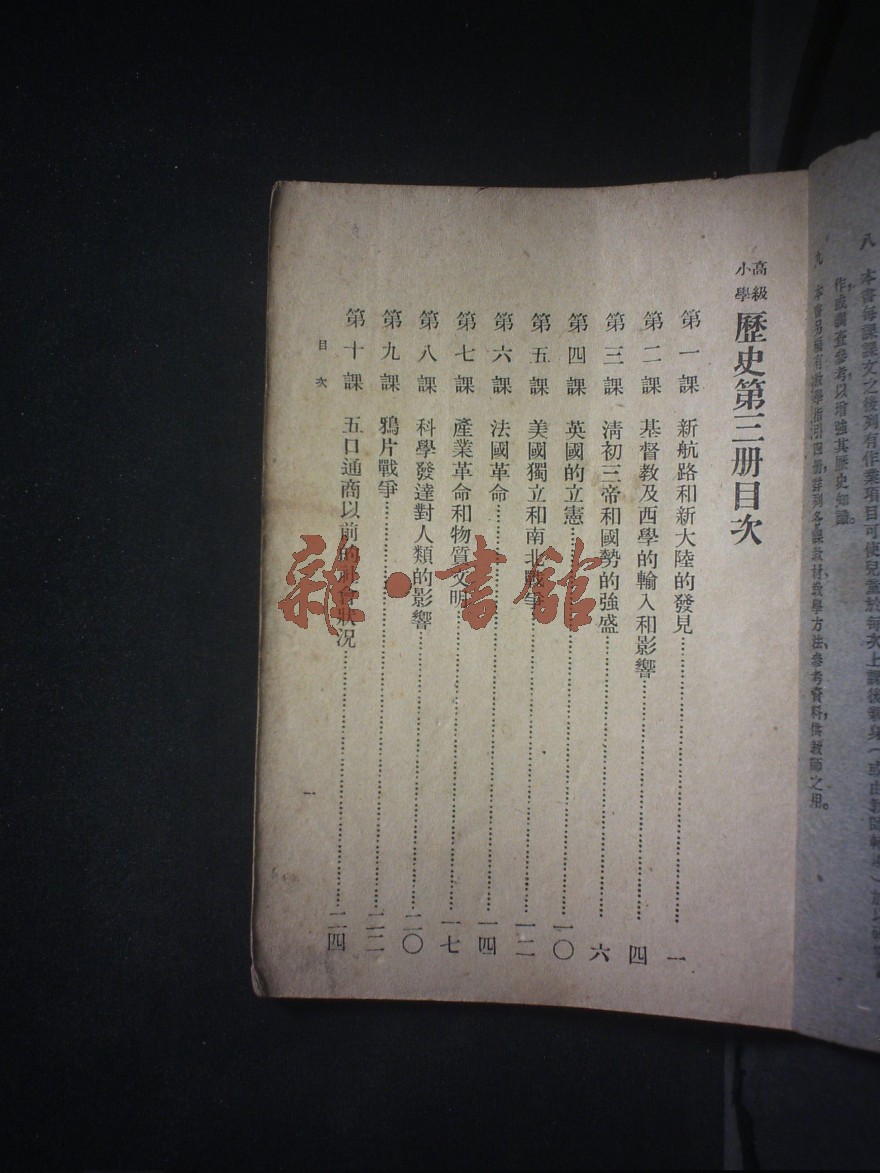 八 本書每課課文之後列有作業項目可使兒童於每次上課後親身（或由教師輔導）
作，或調查參考，以增強其歷史知識。
九 本書另編有教學指引四册，詳列各課教材、教學方法、參考資料，供教師之用。
高級小學 歷史第三册目次
第一課 新航路和新大陸的發見……一
第二課 基督教及西學的輸入和影響……四
第三課 清初三帝和國勢的強盛……六
第四課 英國的立憲……一〇
第五課 美國獨立和南北戰爭……一二
第六課 法國革命……一四
第七課 產業革命和物質文明……一七
第八課 科學發達對人類的影響……二〇
第九課 鴉片戰爭……二二
第十課 五口通商以前的社會狀況……二四
目次
一
雜·書館